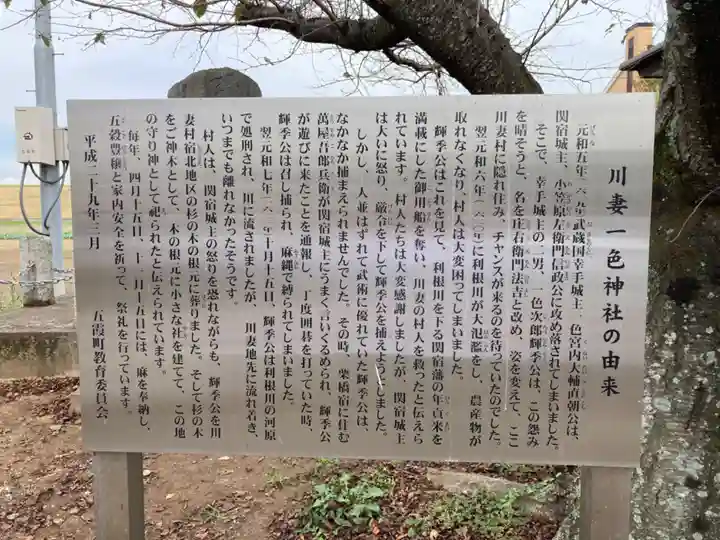 川妻一色神社の由来
元和五年(一六一九)武蔵国幸手城主、一色宮内大輔直朝公は、
関宿城主、小笠原左衛門信政公に攻め落されてしまいました。
そこで、幸手城主の二男、一色次郎輝季公は、この怨み
を晴そうと、名を庄右衛門法吉と改め、姿を変えて、ここ
川妻村に隠れ住み、チャンスが来るのを待っていたのでした。
翌元和六年(一六二〇)に利根川が大氾濫をし、農産物が
取れなくなり、村人は大変困ってしまいました。
輝季公はこれを見て、利根川を下る関宿藩の年貢米を
満載にした御用船を奪い、川妻の村人を救ったと伝えら
れています。村人たちは大変感謝しましたが、関宿城主
は大いに怒り、厳令を下して輝季公を捕えようとしました。
しかし、人並はずれて武術に優れていた輝季公は、
なかなか捕まえられませんでした。その時、柴橋宿に住む
萬屋吾郎兵衛が関宿城主にうまく言いくるめられ、輝季公
が遊びに来たことを通報し、丁度囲碁を打っていた時、
輝季公は召し捕られ、麻縄で縛られてしまいました。
翌元和七年(一六二一)十月十五日、輝季公は利根川の河原
で処刑され、川に流されましたが、川妻地先に流れ着き、
いつまでも離れなかったそうです。
村人は、関宿城主の怒りを恐れながらも、輝季公を川
妻村宿北地区の杉の木の根元に葬りました。そして杉の木
をご神木として、木の根元に小さな社を建てて、この地
の守り神として祀られたと伝えられています。
毎年、四月十五日、十一月十五日には、麻を奉納し、
五穀豊穣と家内安全を祈って、祭礼を行っています。
平成二十九年三月
五霞町教育委員会